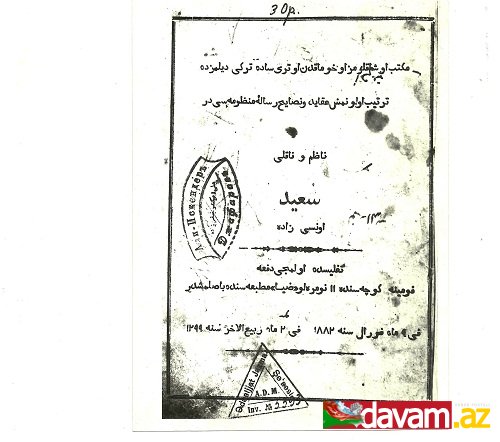 30р.
مکتب اوشاقلرمز اوخوماقدن اوتری ساده ترکی دیلمزده
ترتیب اولونمش عقاید و نصایح رسالهٔ منظومه سی در
ناظم و ناقلی
سعید
اونسی زاده
تفلیسده اولمجی دفعه
کوچه سنده ۱۱ نومرلو ضیاء مطبعه سنده باصلمشدیر
فی ۹ ماه فورال سنه ۱۸۸۲ فی ۲ ماه ربیع الاخر سنه ۱۲۹۹
Али-Искендеръ
Джафарова
A.D.M.
Inv. №
davam.az